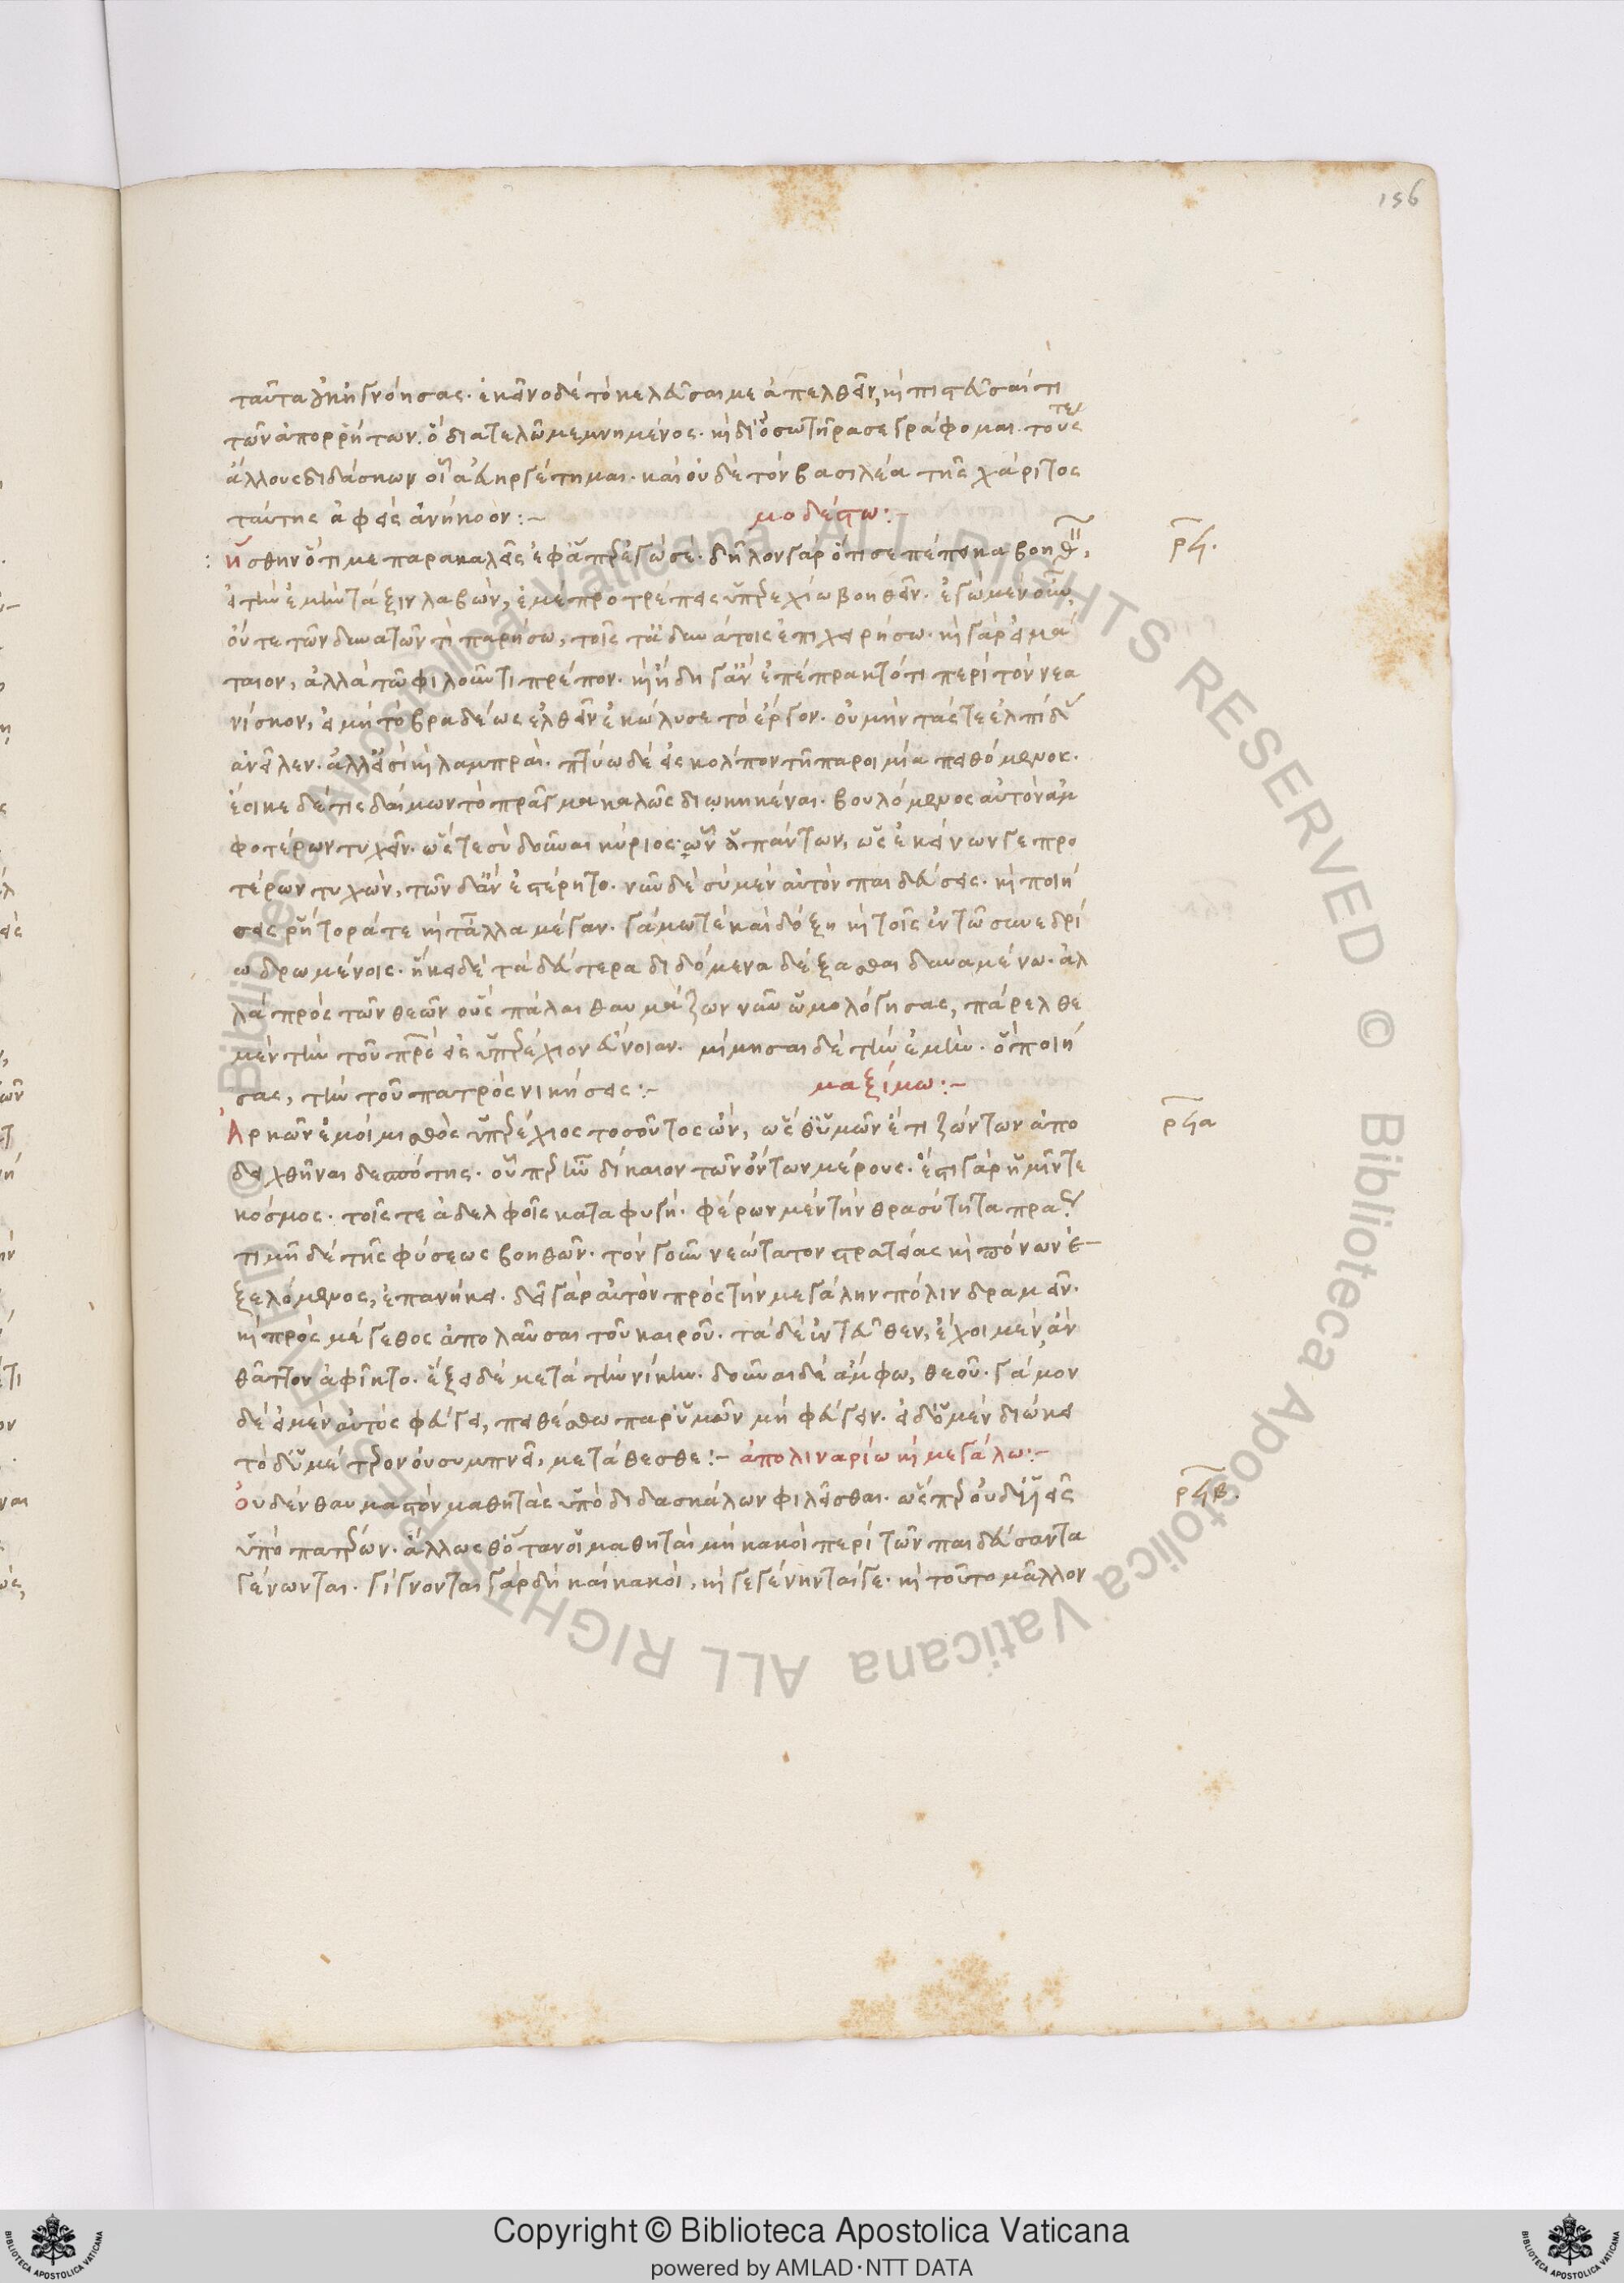 156
ταῦτα ἐκεῖ νοήσας. ἐκεῖνο δὲ τὸ κελεῦσαί με ἀπελθεῖν, καὶ πιστεῦσαί τι
τῶν ἀπορρήτων. ὃ διατελῶ μεμνημένος. καὶ διὸ σωτῆρά σε γράφομαι. τούς τε
ἄλλους διδάσκων οἷα εὐηργέτημαι. καὶ οὐδὲ τὸν βασιλέα τῆς χάριτος
ταύτης ἀφεὶς ἀνήκοον:-
μοδέστω:-
ἥσθην ὅτι με παρακαλεῖς ἐφ' ἃ πρὶν ἐγὼ σέ. δῆλον γὰρ ὅτι σε πέπεικα βοηθεῖν,
εἰ τὴν ἐμὴν τάξιν λαβών, ἐμὲ προτρέπεις ὑπερεχίω βοηθεῖν. ἐγὼ μὲν οὖν,
οὔτε τῶν δυνατῶν τι παρήσω, τοῖς τε ἀδυνάτοις ἐπιχειρήσω. καὶ γὰρ εἰ μά
ταιον, ἀλλὰ τῶ φιλοῦντι πρέπον. καὶ ἤδη γ' ἂν ἐπέπρακτό τι περὶ τὸν νεα
νίσκον, εἰ μὴ τὸ βραδέως ἐλθεῖν ἐκώλυσε τὸ ἔργον. οὐ μὴν τάς τε ἐλπίδας
ἀνεῖλεν. ἀλλ' εἰσὶ καὶ λαμπραί. πτύω δὲ εἰς κόλπον τῆ παροιμία πειθόμενος.
ἔοικε δέ τις δαίμων τὸ πρᾶγμα καλῶς διωκηκέναι. βουλόμενος αὐτὸν ἀμ
φοτέρων τυχεῖν. ὧν τε σὺ δοῦναι κύριος. ὧν θ' ἁπάντων, ὡς ἐκείνων γε προ
τέρων τυχών, τῶν δ' ἂν ἐστέρητο. νῦν δὲ σὺ μὲν αὐτὸν παιδεύσεις. καὶ ποιή
σεις ῥήτορά τε καὶ τἄλλα μέγαν. γάμω τε καὶ δόξη καὶ τοῖς ἐν τῶ συνεδρί
ω δρωμένοις. ἥκει δὲ τὰ δεύτερα διδόμενα δέξασθαι δυναμένω. ἀλ
λὰ πρὸς τῶν θεῶν οὓς πάλαι θαυμάζων νῦν ὡμολόγησας, πάρελθε
μὲν τὴν τοῦ πατρὸς εἰς ὑπερέχιον εὔνοιαν. μίμησαι δὲ τὴν ἐμήν. ὃ ποιή
σας, τὴν τοῦ πατρὸς νικήσεις:-
μαξίμω:-
Ἀρκῶν ἐμοὶ μισθὸς ὑπερέχιος τοσοῦτος ὤν, ὡς θ' ὑμῶν ἔτι ζώντων ἀπο
δειχθῆναι δεσπότης. οὗπερ ἦν δίκαιον τῶν ὄντων μέρους. ἔστι γὰρ ὑμῖν τε
κόσμος. τοῖς τε ἀδελφοῖς καταφυγή. φέρων μὲν τὴν θρασύτητα πρα
τιμῆ δὲ τῆς φύσεως βοηθῶν. τὸν γοῦν νεώτατον στρατείας καὶ πόνων ἐ
ξελόμενος, ἐπανήκει. δεῖ γὰρ αὐτὸν πρὸς τὴν μεγάλην πόλιν δραμεῖν.
καὶ πρὸς μέγεθος ἀπολαῦσαι τοῦ καιροῦ. τὰ δὲ ἐντεῦθεν, ἔχοι μὲν ἂν
θᾶττον ἀφῖκτο. ἕξει δὲ μετὰ τὴν νίκην. δοῦναι δὲ ἄμφω, θεοῦ. γάμον
δὲ εἰ μὲν αὐτὸς φεύγει, πειθέσθω παρ' ὑμῶν μὴ φεύγειν. εἰ δ' ὁ μὲν διώκει
τὸ δ' ὑμέτερον οὐ συμπνεῖ, μετάθεσθε:- ἀπολιναρίω καὶ μεγάλω:-
Οὐδὲν θαυμαστὸν μαθητὰς ὑπὸ διδασκάλων φιλεῖσθαι. ὥσπερ οὐδ' υἱεῖς
ὑπὸ πατέρων. ἄλλως θ' ὅταν οἱ μαθηταὶ μὴ κακοὶ περὶ τὸν παιδεύσαντα
γένωνται. γίγνονται γὰρ δὴ καὶ κακοί, καὶ γεγένηνταί γε. καὶ τοῦτο μᾶλλον
ρϟ.
ρϟα
ρϟβ.
Copyright © Biblioteca Apostolica Vaticana
powered by AMLAD·NTT DATA